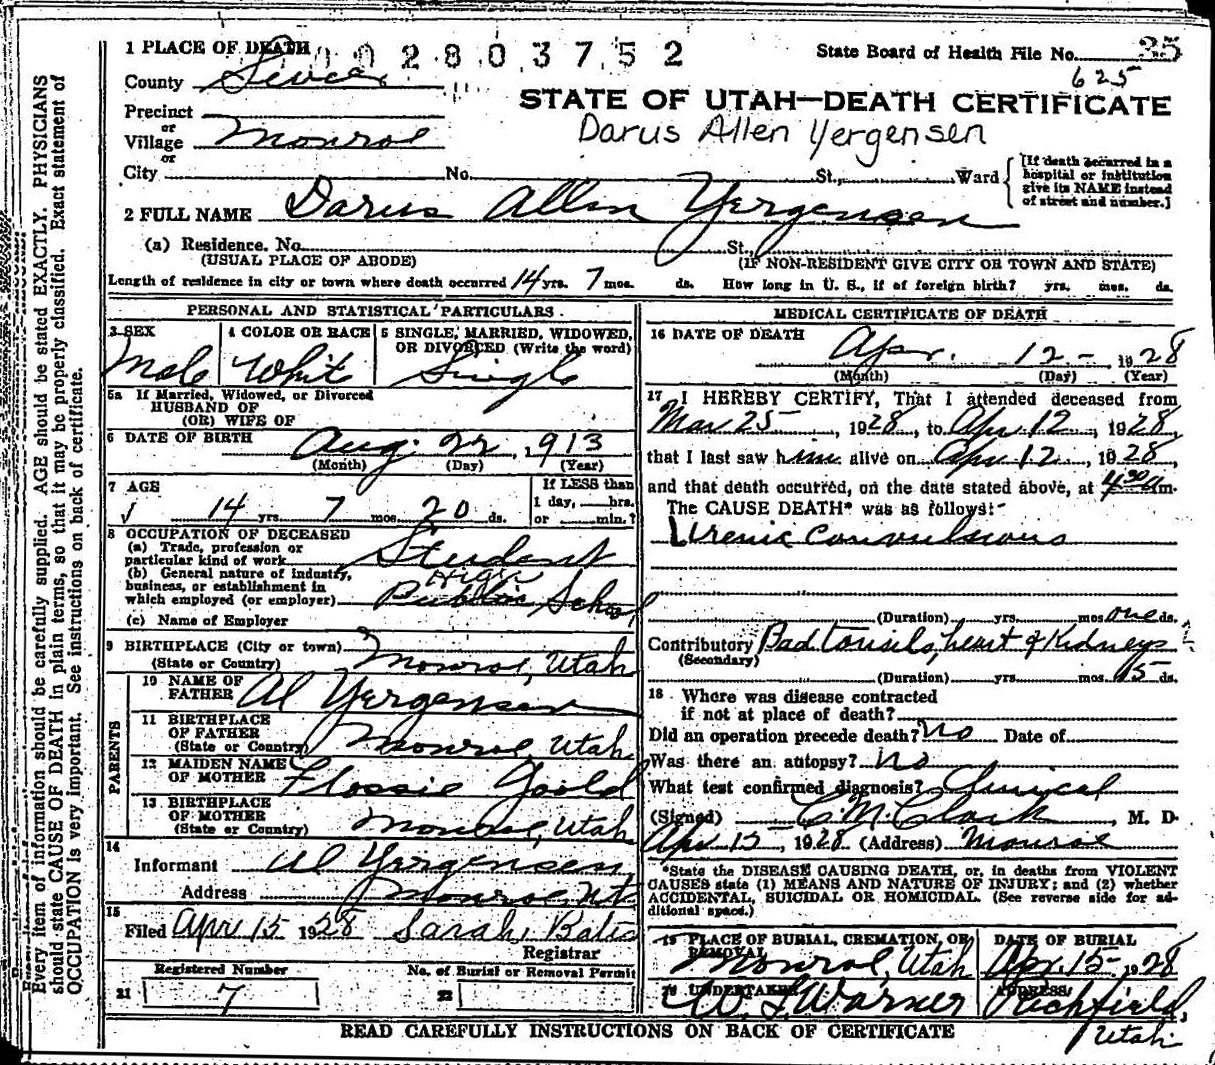 1 PLACE OF DEATH
002803752
State Board of Health File No. 35
County Sevier
625
STATE OF UTAH—DEATH CERTIFICATE
Precinct
or
Village Monroe
Darus Allen Yergensen
or
City No. St., Ward
[If death occurred in a hospital or institution give its NAME instead of street and number.]
2 FULL NAME Darus Allen Yergensen
(a) Residence. No. St.,
(USUAL PLACE OF ABODE) (IF NON-RESIDENT GIVE CITY OR TOWN AND STATE)
Length of residence in city or town where death occurred 14 yrs. 7 mos. ds. How long in U. S., if of foreign birth? yrs. mos. ds.
PERSONAL AND STATISTICAL PARTICULARS
3 SEX 4 COLOR OR RACE 5 SINGLE, MARRIED, WIDOWED, OR DIVORCED (Write the word)
Male White Single
5a If Married, Widowed, or Divorced
HUSBAND OF
(OR) WIFE OF
6 DATE OF BIRTH Aug. 22, 1913
(Month) (Day) (Year)
7 AGE If LESS than
14 yrs. 7 mos. 20 ds. 1 day, hrs. or min.?
8 OCCUPATION OF DECEASED
(a) Trade, profession or
particular kind of work Student
(b) General nature of industry,
business, or establishment in
which employed (or employer) Public High School
(c) Name of Employer
9 BIRTHPLACE (City or town)
(State or Country) Monroe, Utah
PARENTS
10 NAME OF FATHER Al Yergensen
11 BIRTHPLACE OF FATHER
(State or Country) Monroe, Utah
12 MAIDEN NAME OF MOTHER Flossie Goold
13 BIRTHPLACE OF MOTHER
(State or Country) Monroe, Utah
14
Informant Al Yergensen
Address Monroe Ut
15
Filed Apr 15 1928 Sarah Bates
Registrar
Registered Number No. of Burial or Removal Permit
21 7 22
MEDICAL CERTIFICATE OF DEATH
16 DATE OF DEATH
Apr. 12 - , 1928
(Month) (Day) (Year)
17 I HEREBY CERTIFY, That I attended deceased from
Mar 25, 1928, to Apr 12, 1928,
that I last saw him alive on Apr 12, 1928,
and that death occurred, on the date stated above, at 4:30 am.
The CAUSE DEATH* was as follows:
Uremic convulsions
(Duration) yrs. mos. one ds.
Contributory Bad tonsils, heart & Kidneys
(Secondary)
(Duration) yrs. mos. 15 ds.
18 Where was disease contracted
if not at place of death?
Did an operation precede death? No Date of
Was there an autopsy? No
What test confirmed diagnosis? Clinical
(Signed) C. M. Clark, M. D.
Apr 15, 1928 (Address) Monroe
*State the DISEASE CAUSING DEATH, or, in deaths from VIOLENT
CAUSES state (1) MEANS AND NATURE OF INJURY; and (2) whether
ACCIDENTAL, SUICIDAL OR HOMICIDAL. (See reverse side for ad-
ditional space.)
19 PLACE OF BURIAL, CREMATION, OR REMOVAL DATE OF BURIAL
Monroe, Utah Apr. 15- 1928
20 UNDERTAKER ADDRESS
W. L. Warner Richfield, Utah
READ CAREFULLY INSTRUCTIONS ON BACK OF CERTIFICATE
Every item of information should be carefully supplied. AGE should be stated EXACTLY. PHYSICIANS
should state CAUSE OF DEATH in plain terms, so that it may be properly classified. Exact statement of
OCCUPATION is very important. See instructions on back of certificate.